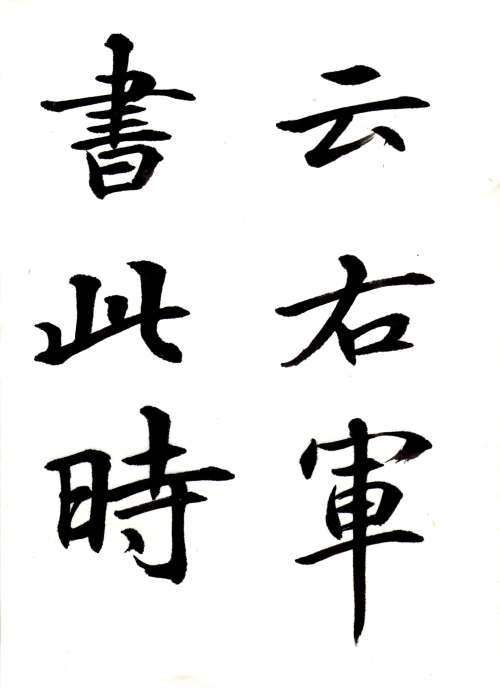 云右軍
書此時